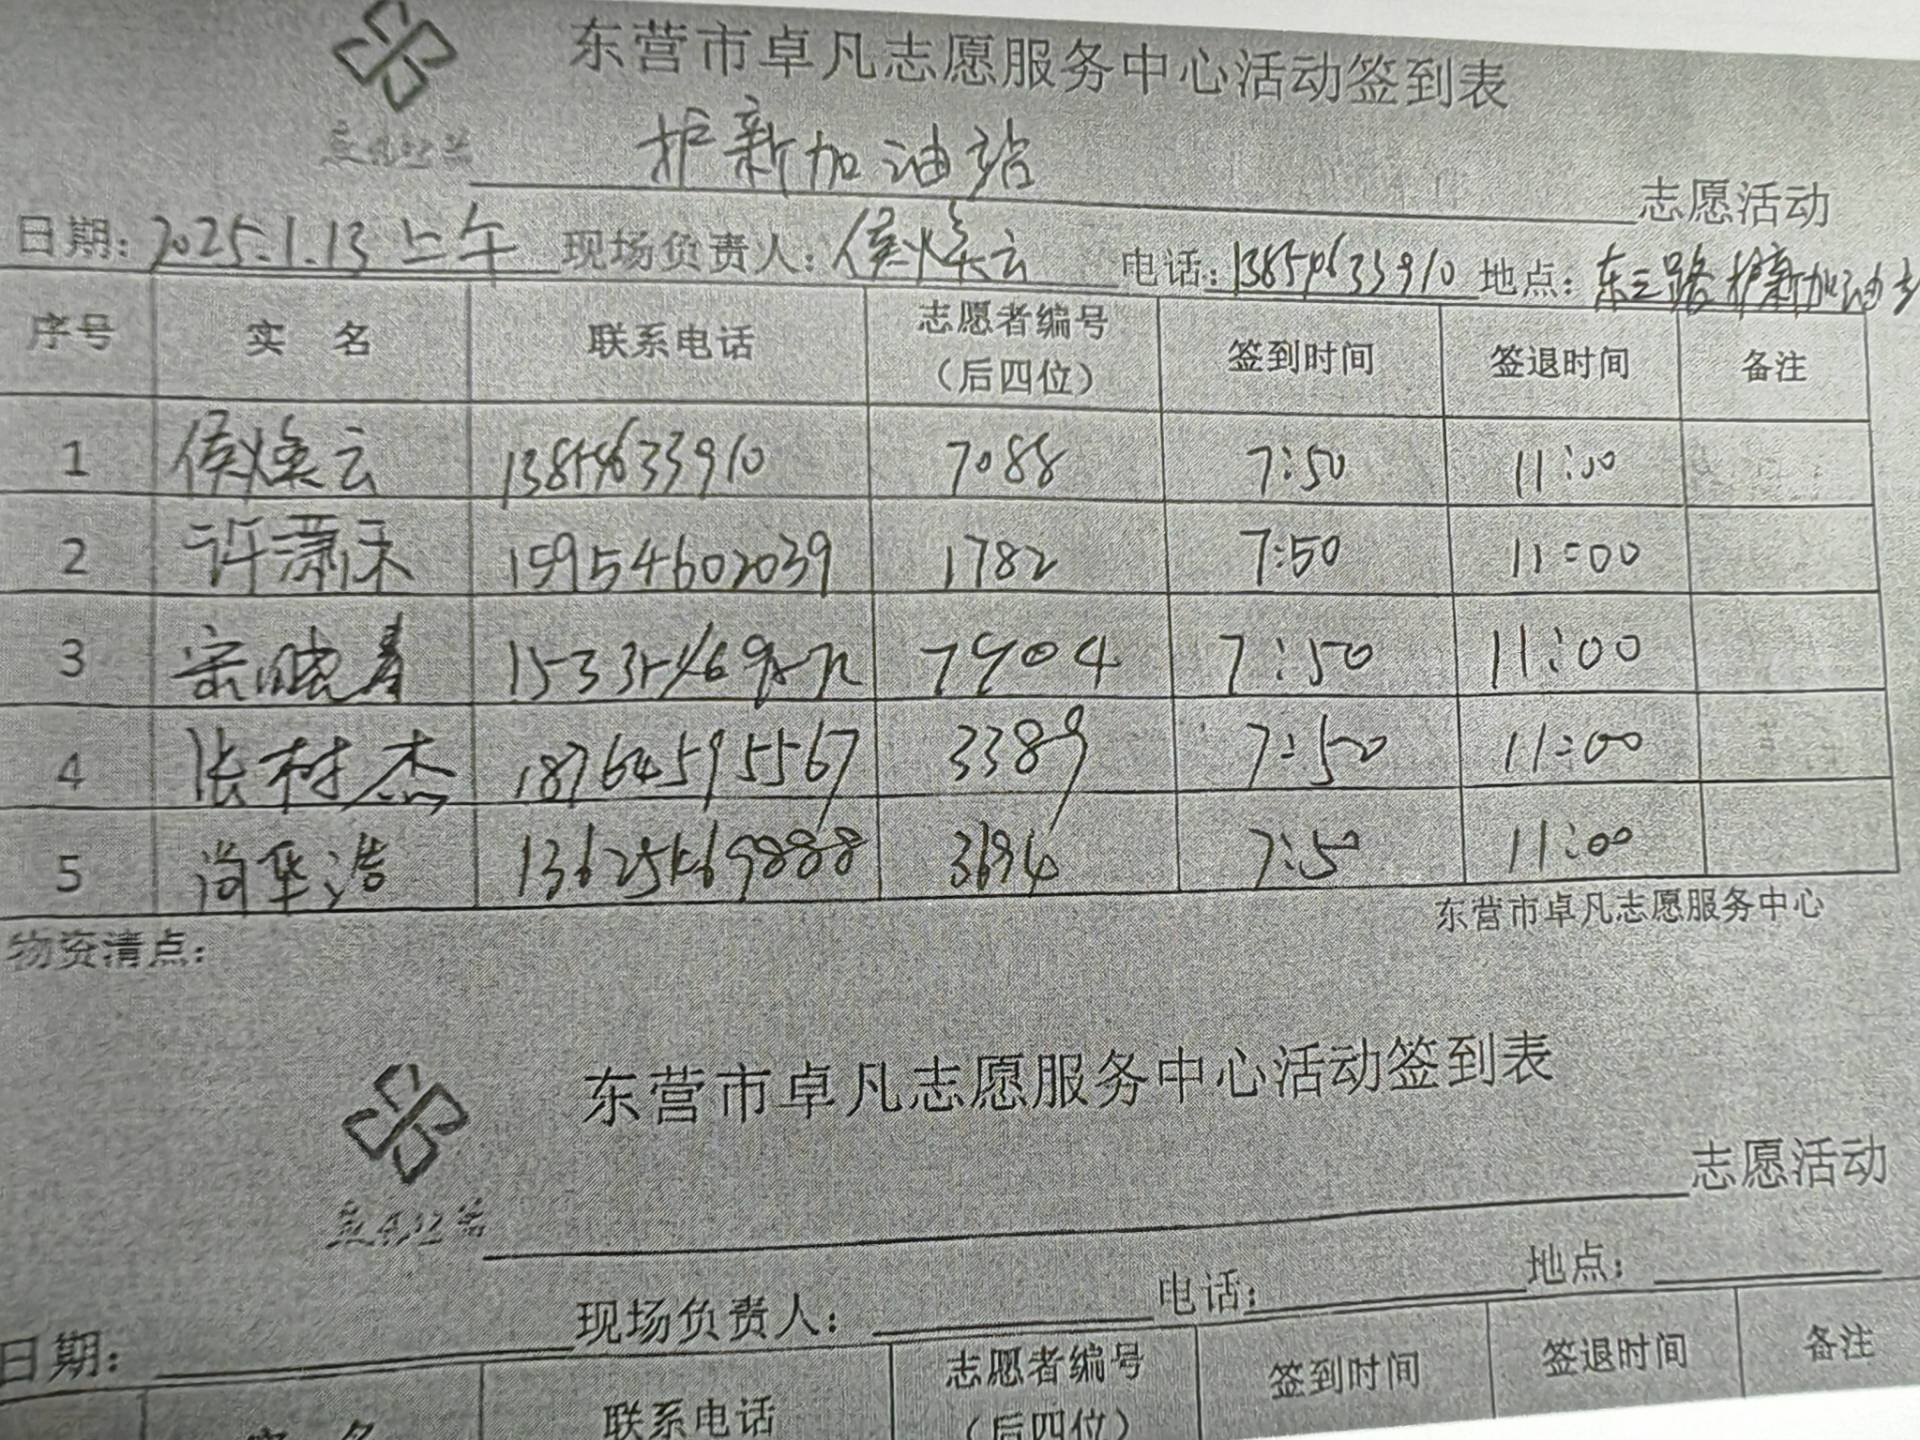 东营市卓凡志愿服务中心活动签到表
护新加油站 志愿活动
日期: 2025.1.13 上午 现场负责人: 侯焕云 电话: 13854633910 地点: 东三路护新加油站
序号 实 名 联系电话 志愿者编号（后四位） 签到时间 签退时间 备注
1 侯焕云 13854633910 7088 7:50 11:00
2 许潇禾 15954602039 1782 7:50 11:00
3 宗晓春 7904 7:50 11:00
4 张树杰 18764595567 3389 7:50 11:00
5 尚华浩 13625469888 3694 7:50 11:00
东营市卓凡志愿服务中心
物资清点:
东营市卓凡志愿服务中心活动签到表
志愿活动
日期: 现场负责人: 电话: 地点:
实 名 联系电话 志愿者编号（后四位） 签到时间 签退时间 备注